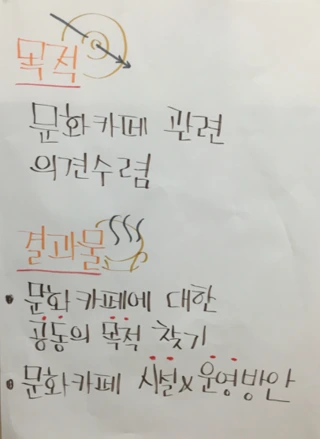 목적
문화카페 관련
의견수렴
결과물
• 문화카페에 대한
공동의 목적 찾기
• 문화카페 시설x운영방안